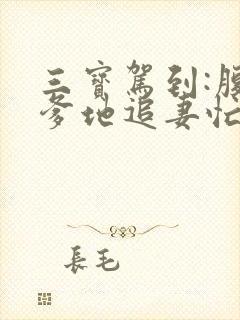 三寶駕到:腹
爹地追妻忙
長毛